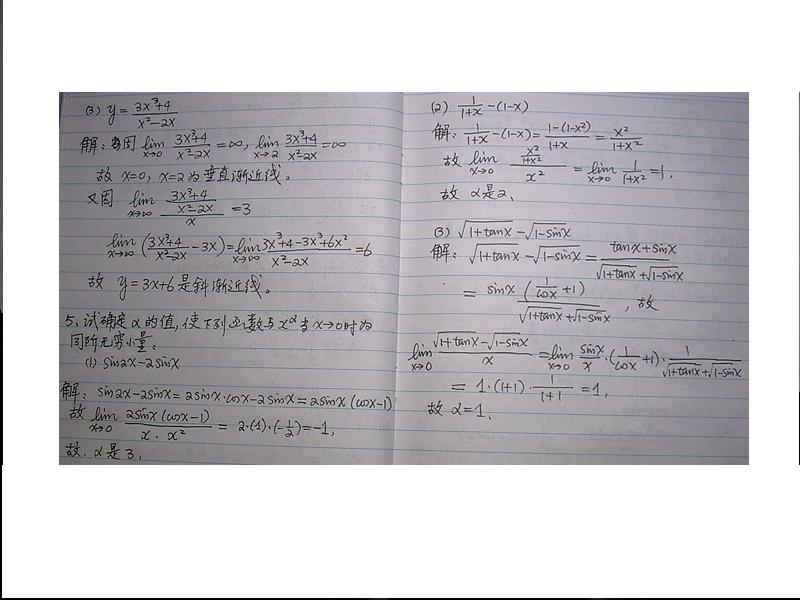 (3) y = (3x³+4)/(x²-2x)
解: 因 lim_{x→0} (3x³+4)/(x²-2x) = ∞, lim_{x→2} (3x³+4)/(x²-2x) = ∞
故 x=0, x=2 为垂直渐近线。
又因 lim_{x→∞} ((3x³+4)/(x²-2x))/x = 3
lim_{x→∞} ((3x³+4)/(x²-2x) - 3x) = lim_{x→∞} (3x³+4-3x³+6x²)/(x²-2x) = 6
故 y=3x+6 是斜渐近线。
5. 试确定 α 的值, 使下列函数与 x^α 当 x→0 时为
同阶无穷小量:
(1) sin2x-2sinx
解: sin2x-2sinx = 2sinx·cosx-2sinx = 2sinx(cosx-1)
故 lim_{x→0} (2sinx(cosx-1))/(x·x²) = 2·(1)·(-1/2) = -1,
故. α 是 3,
(2) 1/(1+x) - (1-x)
解: 1/(1+x) - (1-x) = (1-(1-x²))/(1+x) = x²/(1+x²)
故 lim_{x→0} (x²/(1+x²))/x² = lim_{x→0} 1/(1+x²) = 1,
故 α 是 2、
(3) √(1+tanx) - √(1-sinx)
解: √(1+tanx) - √(1-sinx) = (tanx+sinx)/(√(1+tanx)+√(1-sinx))
= sinx(1/cosx+1)/(√(1+tanx)+√(1-sinx)), 故
lim_{x→0} (√(1+tanx)-√(1-sinx))/x = lim_{x→0} sinx/x·(1/cosx+1)·1/(√(1+tanx)+√(1-sinx))
= 1·(1+1)·1/(1+1) = 1,
故 α=1、